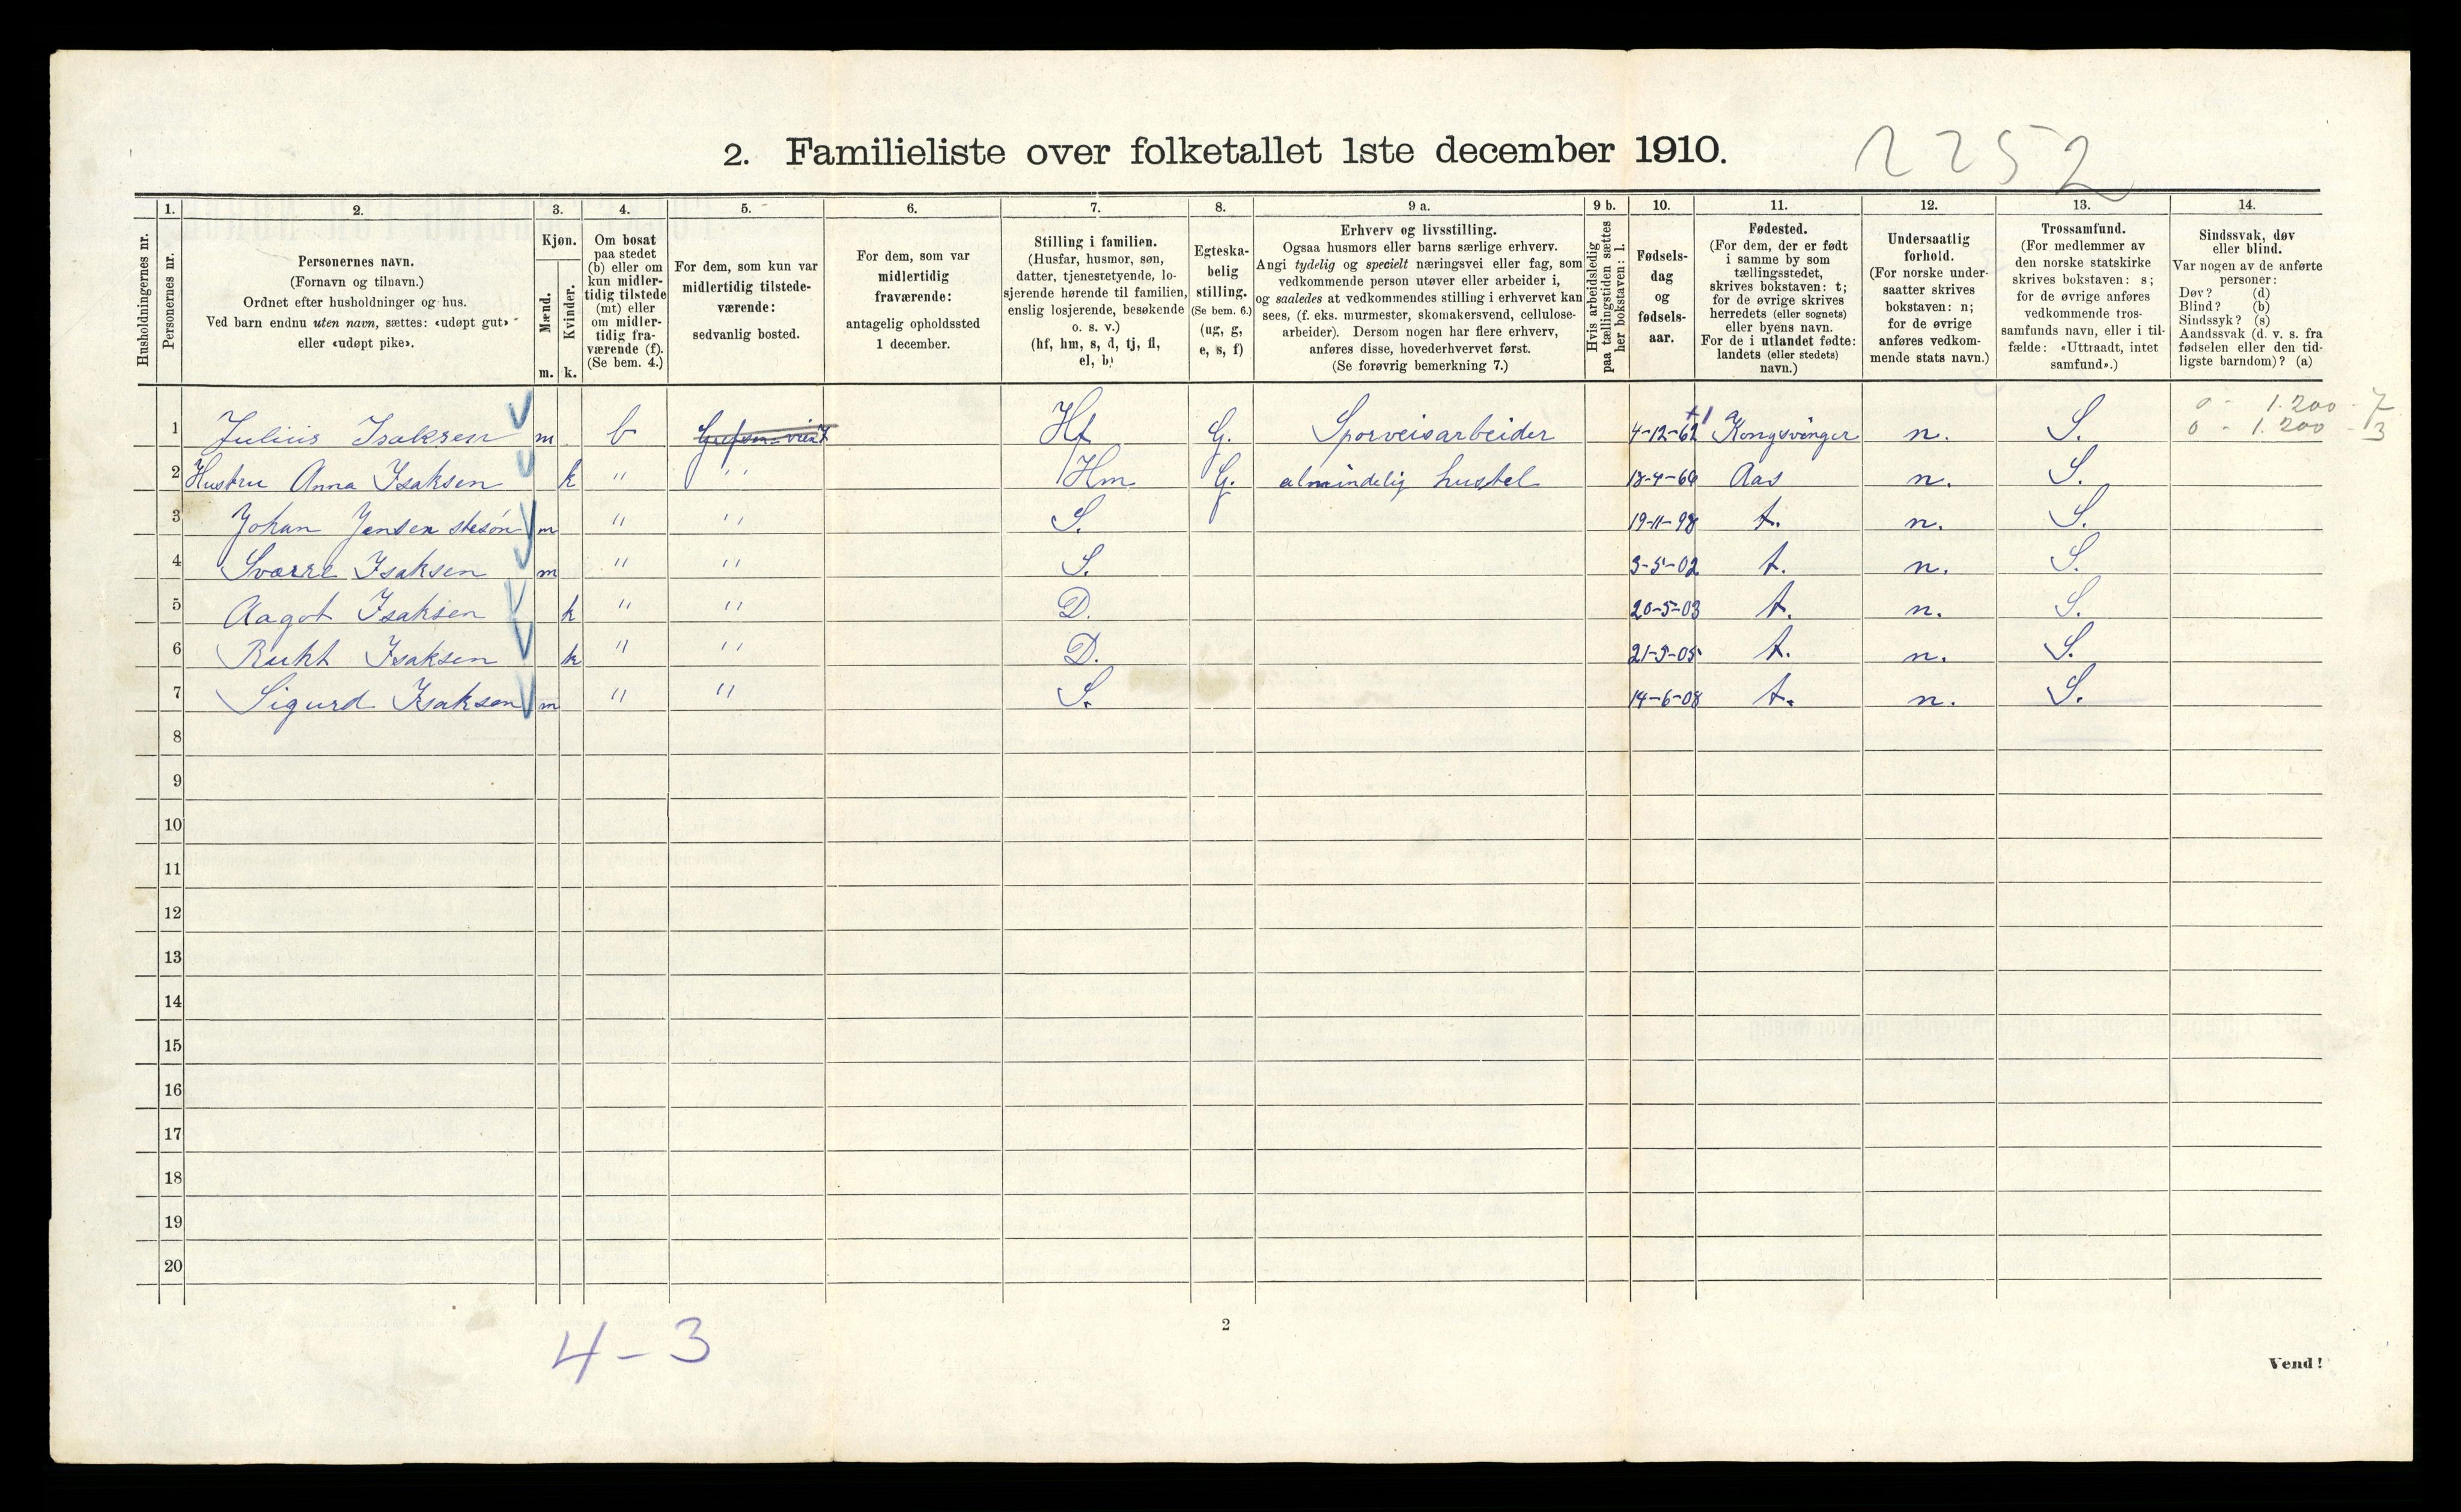 2252
2. Familieliste over folketallet 1ste december 1910.
Husholdningernes nr.
1. Personernes nr.
2. Personernes navn.
(Fornavn og tilnavn.)
Ordnet efter husholdninger og hus.
Ved barn endnu uten navn, sættes: «udøpt gut»
eller «udøpt pike».
3. Kjøn.
Mænd. m.
Kvinder. k.
4. Om bosat
paa stedet
(b) eller om
kun midler-
tidig tilstede
(mt) eller
om midler-
tidig fra-
værende (f).
(Se bem. 4.)
5. For dem, som kun var
midlertidig tilstede-
værende:
sedvanlig bosted.
6. For dem, som var
midlertidig
fraværende:
antagelig opholdssted
1 december.
7. Stilling i familien.
(Husfar, husmor, søn,
datter, tjenestetyende, lo-
sjerende hørende til familien,
enslig losjerende, besøkende
o. s. v.)
(hf, hm, s, d, tj, fl,
el, b)
8. Egteska-
belig
stilling.
(Se bem. 6.)
(ug, g,
e, s, f)
9 a. Erhverv og livsstilling.
Ogsaa husmors eller barns særlige erhverv.
Angi tydelig og specielt næringsvei eller fag, som
vedkommende person utøver eller arbeider i,
og saaledes at vedkommendes stilling i erhvervet kan
sees, (f. eks. murmester, skomakersvend, cellulose-
arbeider). Dersom nogen har flere erhverv,
anføres disse, hovederhvervet først.
(Se forøvrig bemerkning 7.)
9 b. Hvis arbeidsledig
paa tællingstiden sættes
her bokstaven: l.
10. Fødsels-
dag
og
fødsels-
aar.
11. Fødested.
(For dem, der er født
i samme by som
tællingsstedet,
skrives bokstaven: t;
for de øvrige skrives
herredets (eller sognets)
eller byens navn.
For de i utlandet fødte:
landets (eller stedets)
navn.)
12. Undersaatlig
forhold.
(For norske under-
saatter skrives
bokstaven: n;
for de øvrige
anføres vedkom-
mende stats navn.)
13. Trossamfund.
(For medlemmer av
den norske statskirke
skrives bokstaven: s;
for de øvrige anføres
vedkommende tros-
samfunds navn, eller i til-
fælde: «Uttraadt, intet
samfund».)
14. Sindssvak, døv
eller blind.
Var nogen av de anførte
personer:
Døv? (d)
Blind? (b)
Sindssyk? (s)
Aandssvak (d. v. s. fra
fødselen eller den tid-
ligste barndom)? (a)
0 - 1.200 - 7
0 - 1.200 - 3
1 Julius Isaksen m b Hf G. Sporveisarbeider 4-12-62 Kongsvinger n. S.
2 Hustru Anna Isaksen k " " Hm G. almindelig hustel 13-4-66 Aas n. S.
3 Johan Jensen stesøn m " " S. 19-11-98 t. n. S.
4 Sværre Isaksen m " " S. 3-5-02 t. n. S.
5 Aagot Isaksen k " " D. 20-5-03 t. n. S.
6 Rukt Isaksen k " " D. 21-5-05 t. n. S.
7 Sigurd Isaksen m " " S. 14-6-08 t. n. S.
8
9
10
11
12
13
14
15
16
17
18
19
20
4-3
2
Vend!